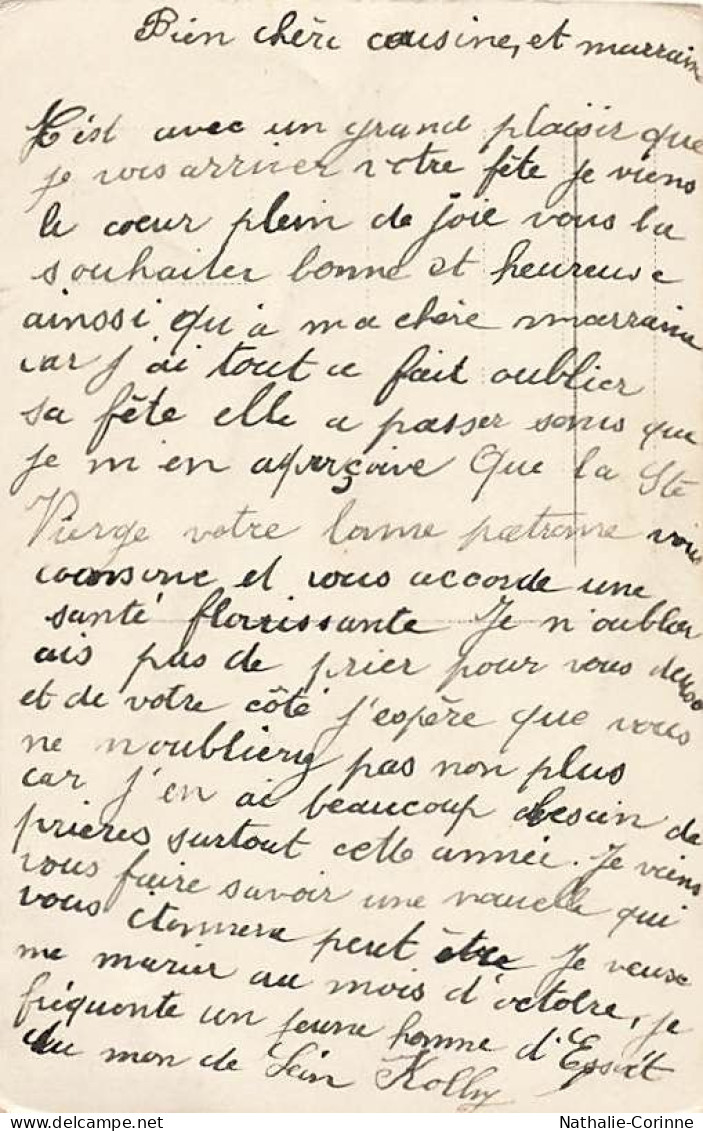 Bien chère cousine, et marraine
C'est avec un grand plaisir que
je vois arriver votre fête je viens
le coeur plein de joie vous la
souhaiter bonne et heureuse
ainssi qu'a ma chère marraine
car j'ai tout a fait oublier
sa fête elle a passer sans que
je m'en aperçoive Que la Ste
Vierge votre bonne patronne vous
et vous accorde une
santé florissante Je n'oublier
ais pas de prier pour vous deux
et de votre côté j'espère que vous
ne n'oublierz pas non plus
car j'en ai beaucoup besoin de
prières surtout cette année. Je viens
vous faire savoir une nouvelle qui
vous étonnera peut être Je veuse
me marier au mois d'octobre, je
fréquente un jeune homme d'
du mon de Kolly
Nathalie-Corinne